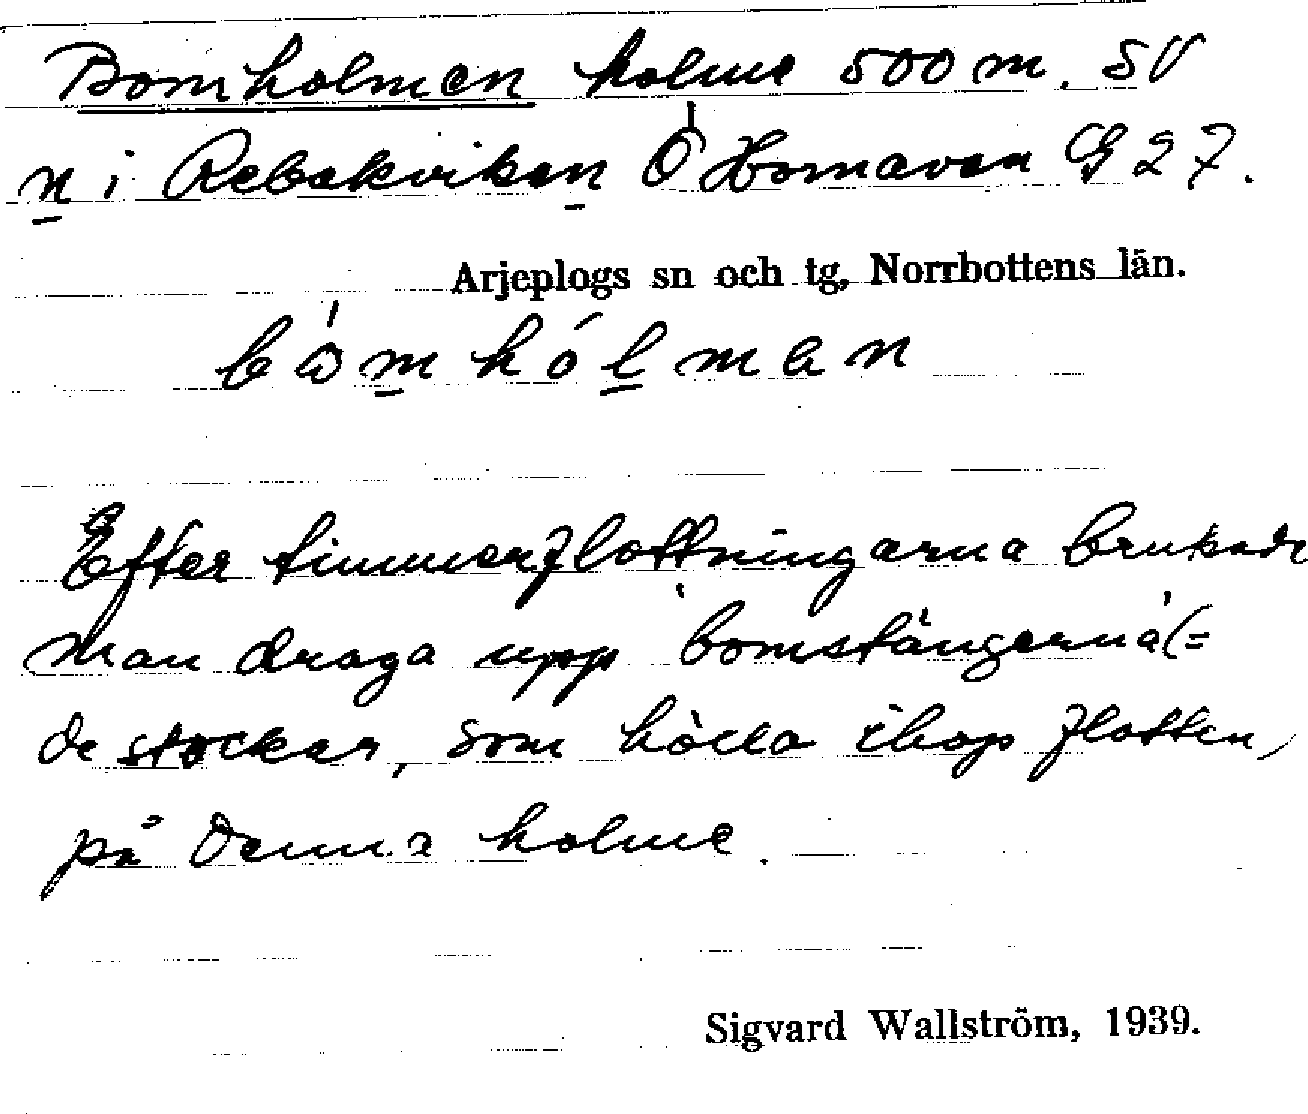 Bomholmen holme 500 m. SV
n i Rebakviken Ö Hornavan G 27.
Arjeplogs sn och tg, Norrbottens län.
bòmhólman
Efter timmerflottningarna brukade
man draga upp 'bomstängerna' (=
de stockar, som höllo ihop flotten)
på denna holme.
Sigvard Wallström, 1939.